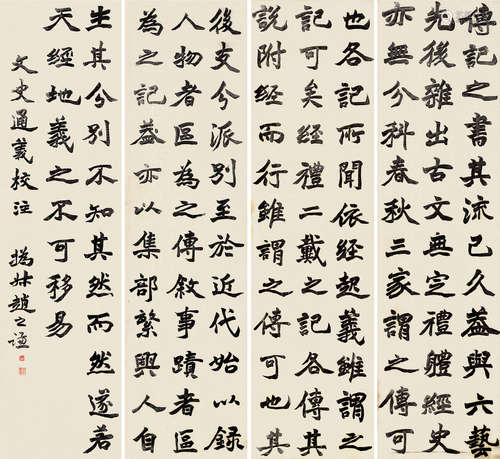 傳記之書其流已久蓋與六藝
先後雜出古文無定禮體經史
亦無分科春秋三家謂之傳可
也各記所聞依經起義雖謂之
記可矣經禮二戴之記各傳其
說附經而行雖謂之傳可也其
後支分派別至於近代始以錄
人物者區為之傳敘事蹟者區
為之記蓋亦以集部繁興人自
生其分別不知其然而然遂若
天經地義之不可移易
文史通義校注 撝叔趙之謙